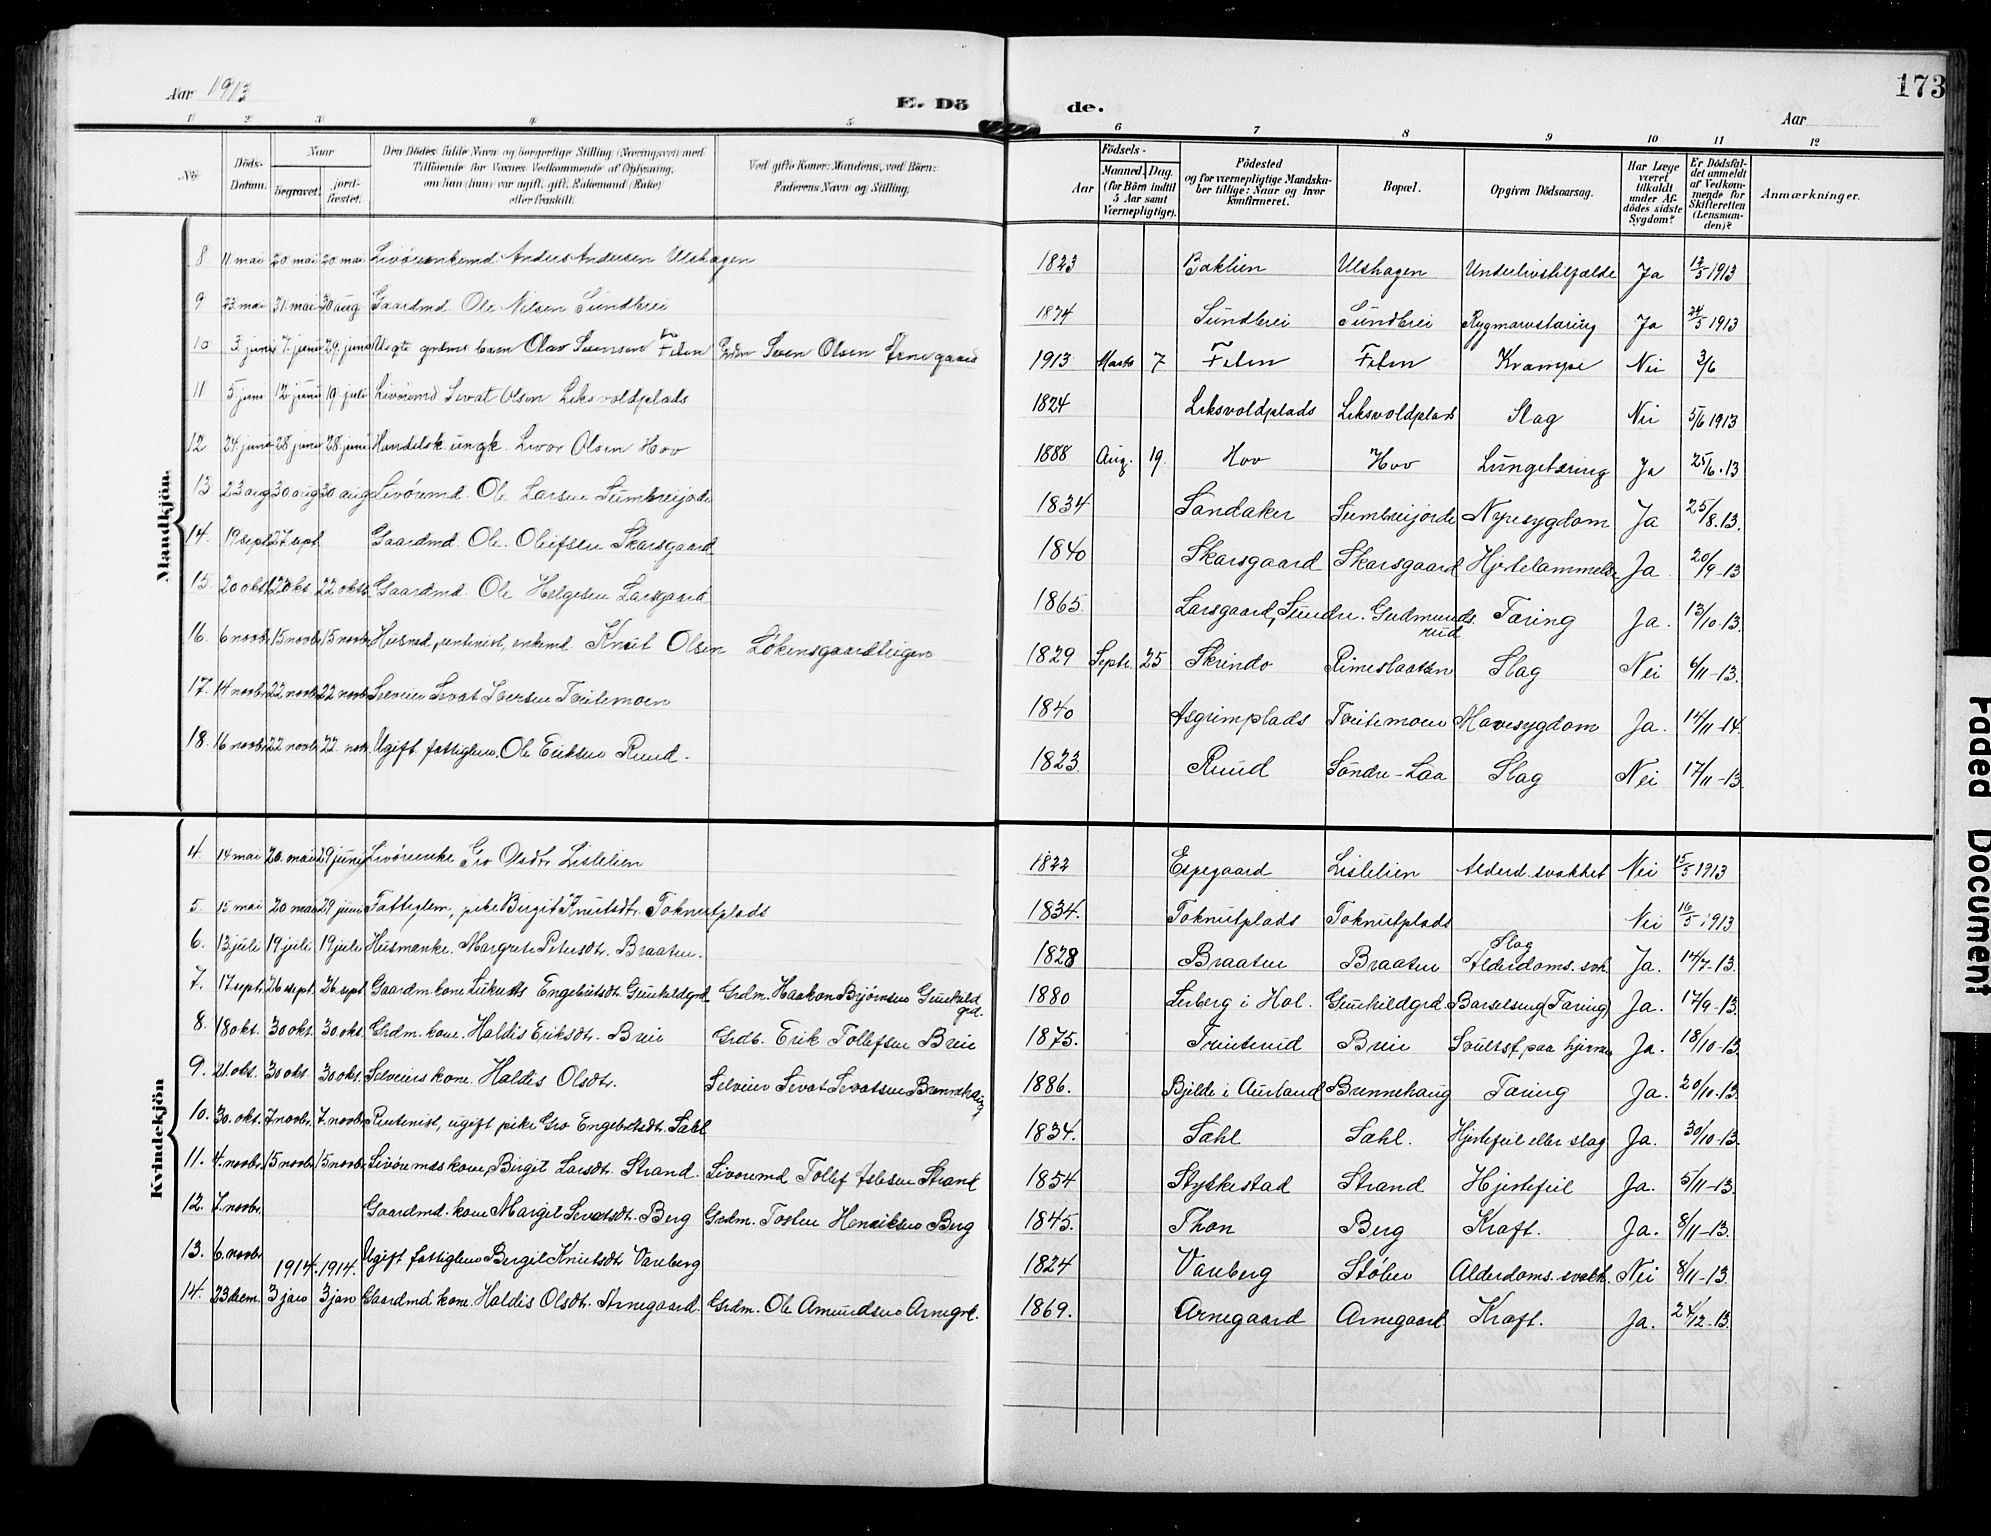 Aar 1913
E. Dö de.
173
Aar
1 2 3 4 5 6 7 8 9 10 11 12
No
Döds-Datum.
Naar
begravet.
jord-fæstet.
Den Dödes fulde Navn og borgerlige Stilling (Næringsvei) med
Tilföiende for Voxnes Vedkommende af Oplysning,
om han (hun) var ugift, gift, Enkemand (Enke)
eller fraskilt.
Ved gifte Koner: Mandens, ved Börn:
Faderens Navn og Stilling.
Födsels-
Aar
Maaned. Dag.
(for Börn indtil
5 Aar samt
Værnepligtige).
Födested
og for værnepligtige Mandskaber tillige: Naar og hvor
konfirmeret.
Bopæl.
Opgiven Dödsaarsag.
Har Læge været tilkaldt under Afdödes sidste Sygdom?
Er Dödsfaldet anmeldt af Vedkommende for Skifteretten (Lensmanden)?
Anmærkninger.
Mandkjön.
8 11 mai 20 mai 20 mai Livöreenkemd. Anders Andersen Ulshagen 1823 Baklien Ulshagen Underlivstilfælde Ja 12/5 1913
9 23 mai 31. mai 30 aug Gaardmd. Ole Nilsen Sundbrei 1874 Sundbrei Sundbrei Rygmarvstæring Ja 24/5 1913
10 3. juni 7. juni 29. juni Uegte grdms barn Olav Svensen Felen Grdm Sven Olsen Arnegaard 1913 Marts 7 Felen Felen Krampe Nei 3/6
11 5. juni 12 juni 19. juli Livöremd Sevat Olsen Liksvoldplads 1824 Liksvoldplads Liksvoldplads Slag Nei 5/6 1913
12 24. juni 28 juni 28. juni Handelsk. ungk. Livor Olsen Hov 1888 Aug. 19. Hov Hov Lungetæring Ja 25/6.13
13 23 aug 30 aug 30 aug Livöremd. Ole Larsen Sumbreijorde 1834 Sandaker Sumbreijorde Nyresygdom Ja 25/8.13.
14. 19 sept 27 sept Gaardmd. Ole Oleifsen Skarsgaard 1840 Skarsgaard Skarsgaard Hjertelammelse Ja 20/9-13
15. 20 okt. 22 okt. 22 oktr. Gaardmd. Ole Helgesen Larsgaard 1865 Larsgaard, Sundre. Gudmundsrud Tæring Ja. 13/10.13.
16. 6 novbr. 15 novbr. 15 novbr. Husmd, rentenist, enkemd. Knut Olsen Løkensgaardteigen 1829 Septr. 25 Skrindo Rimeslaatten Slag Nei 6/11-13.
17. 14 novbr. 22 novbr. 22 novbr. Selveier Sevat Iversen Tveitemoen 1840 Asgrimplads Tveitemoen Mavesygdom Ja. 14/11-14.
18. 16 novbr. 22 novbr. 22. novbr. Ugift fattiglem, Ole Eriksen Ruud. 1823. Ruud Söndre-Laa Slag Nei 17/11-13.
Kvindekjön
4. 14 mai 20. mai 29 juni Livöreenke Gro Olsdtr Lislelien 1822 Espegaard Lislelien Alderd. svakhet Nei 15/5 1913
5. 15 mai 20 mai 29 juni Fattiglem, pike Birgit Knutsdtr. Toknutplads 1834. Toknutplads Toknutplads Nei 16/5 1913
6. 13 juli 19 juli 19 juli Husmænke. Margrete Petersdtr. Braaten. 1828 Braaten Braaten Slag Alderdoms. svk. Ja. 14/7-13.
7. 17 sept. 26 sept. 26 sept. Gaardm. kone Engebretsdt. Gunhildgrd Grdm. Haakon Bjørnsen Gunhildgrd. 1880 Lerberg i Hol. Gunhildgrd. Barselseng (Tæring) Ja. 17/9-13.
8. 18 okt. 30 okt. 30 okt. Grdm. kone. Haldis Eriksdt. Breie Grdb. Erik Tollefsen Breie 1875. Treiterud Breie Svulst paa hjernen Ja. 18/10-13.
9. 21. okt. 30 okt 30 okt. Selveiers kone. Haldis Olsdtr. Selveier Sevat Sevatsen Brennehaug 1886. Bjelde i Aurland Brennehaug Tæring Ja. 20/10.13.
10. 30. okt. 7 novbr. 7. novbr. Rentenist, ugift pike Gro Engebretsdt. Sæhl 1834. Sæhl Sæhl. Hjertefeil eller slag Ja. 30/10-13.
11. 4. novbr. 15 novbr. 15 novbr. Livöremds kone, Birgit Larsdtr. Strand. Livoremd Tollef Aslesen Strand 1854 Stykkestad Strand Hjertefeil Ja. 5/11-13.
12. 7. novbr. Gaardmd. kone Margit Sevatsdtr. Berg Grdm. Tosten Henriksen Berg 1845. Thon Berg Kræft. Ja. 8/11-13.
13. 6. novbr 1914. 1914. Ugift fattiglem Bergit Knutsdtr Vareberg 1824 Vareberg Støler Alderdoms. svakh. Nei 8/11-13.
14. 23 dem. 3 jan 3 jan Gaardmd kone. Haldis Olsdtr. Arnegaard. Grdm. Ole Amundsen Arnegrd. 1869. Arnegaard Arnegaard. Kræft. Ja. 24/12-13.
Faded Document